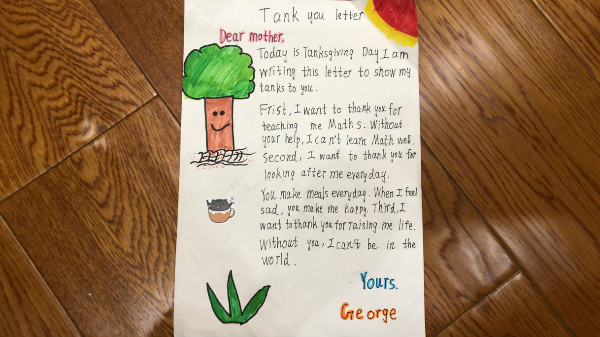 Tank you letter
Dear mother,
Today is Tanksgiving Day, I am
writing this letter to show my
tanks to you.
Frist, I want to thank you for
teaching me Maths. Without
your help, I can't learn Math well.
Second, I want to thank you for
looking after me everyday.
You make meals everyday. When I feel
sad, you make me happy. Third, I
want to thank you for raising me life.
Without you, I can't be in the
world.
Yours.
George